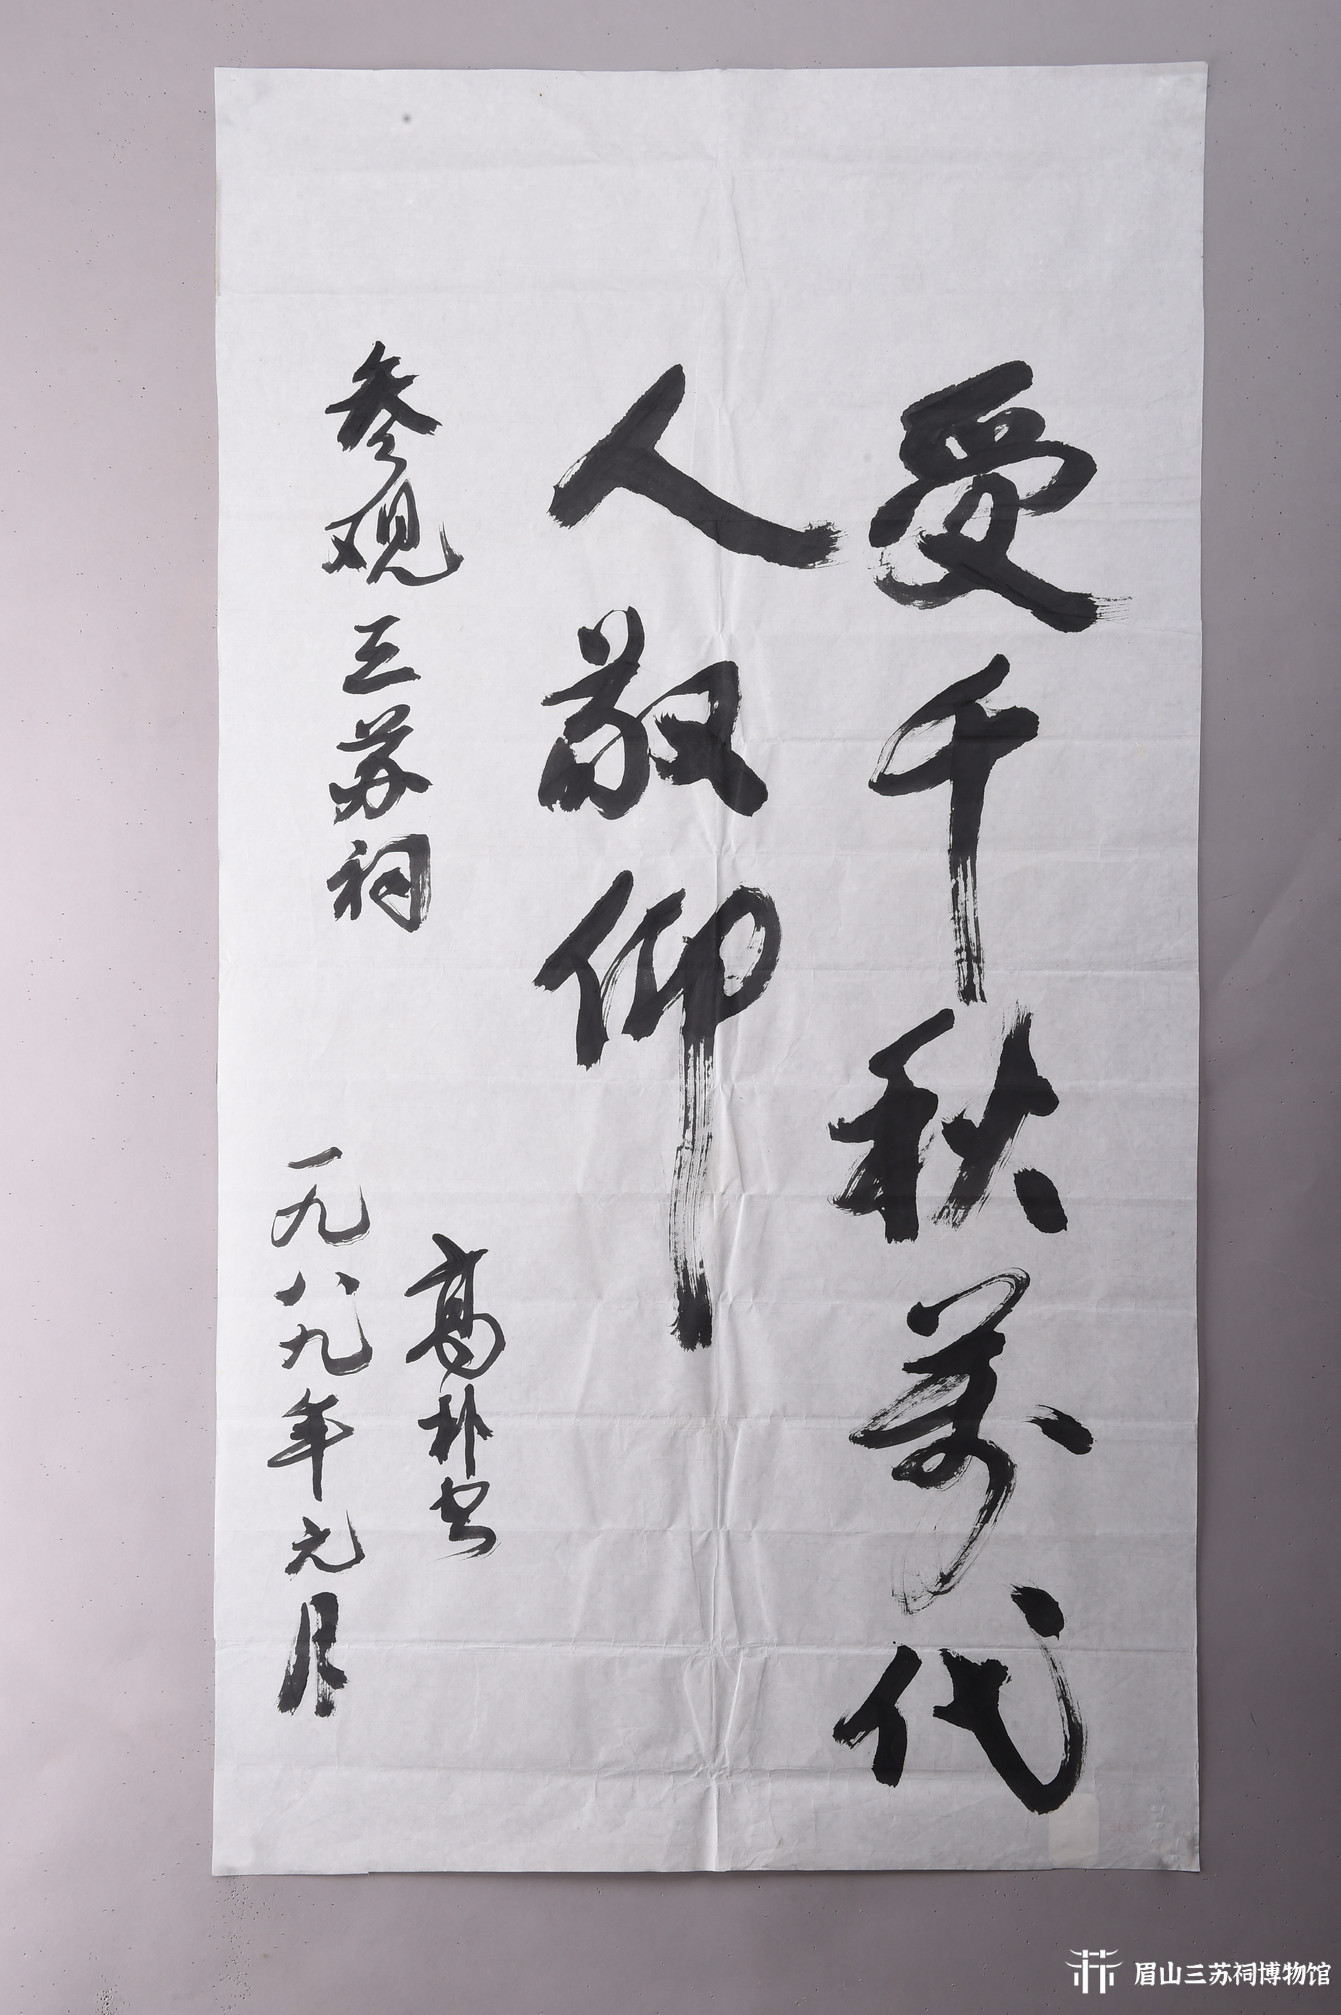 受千秋萬代
人敬仰
参观三苏祠
高朴书
一九八九年元月
眉山三苏祠博物馆